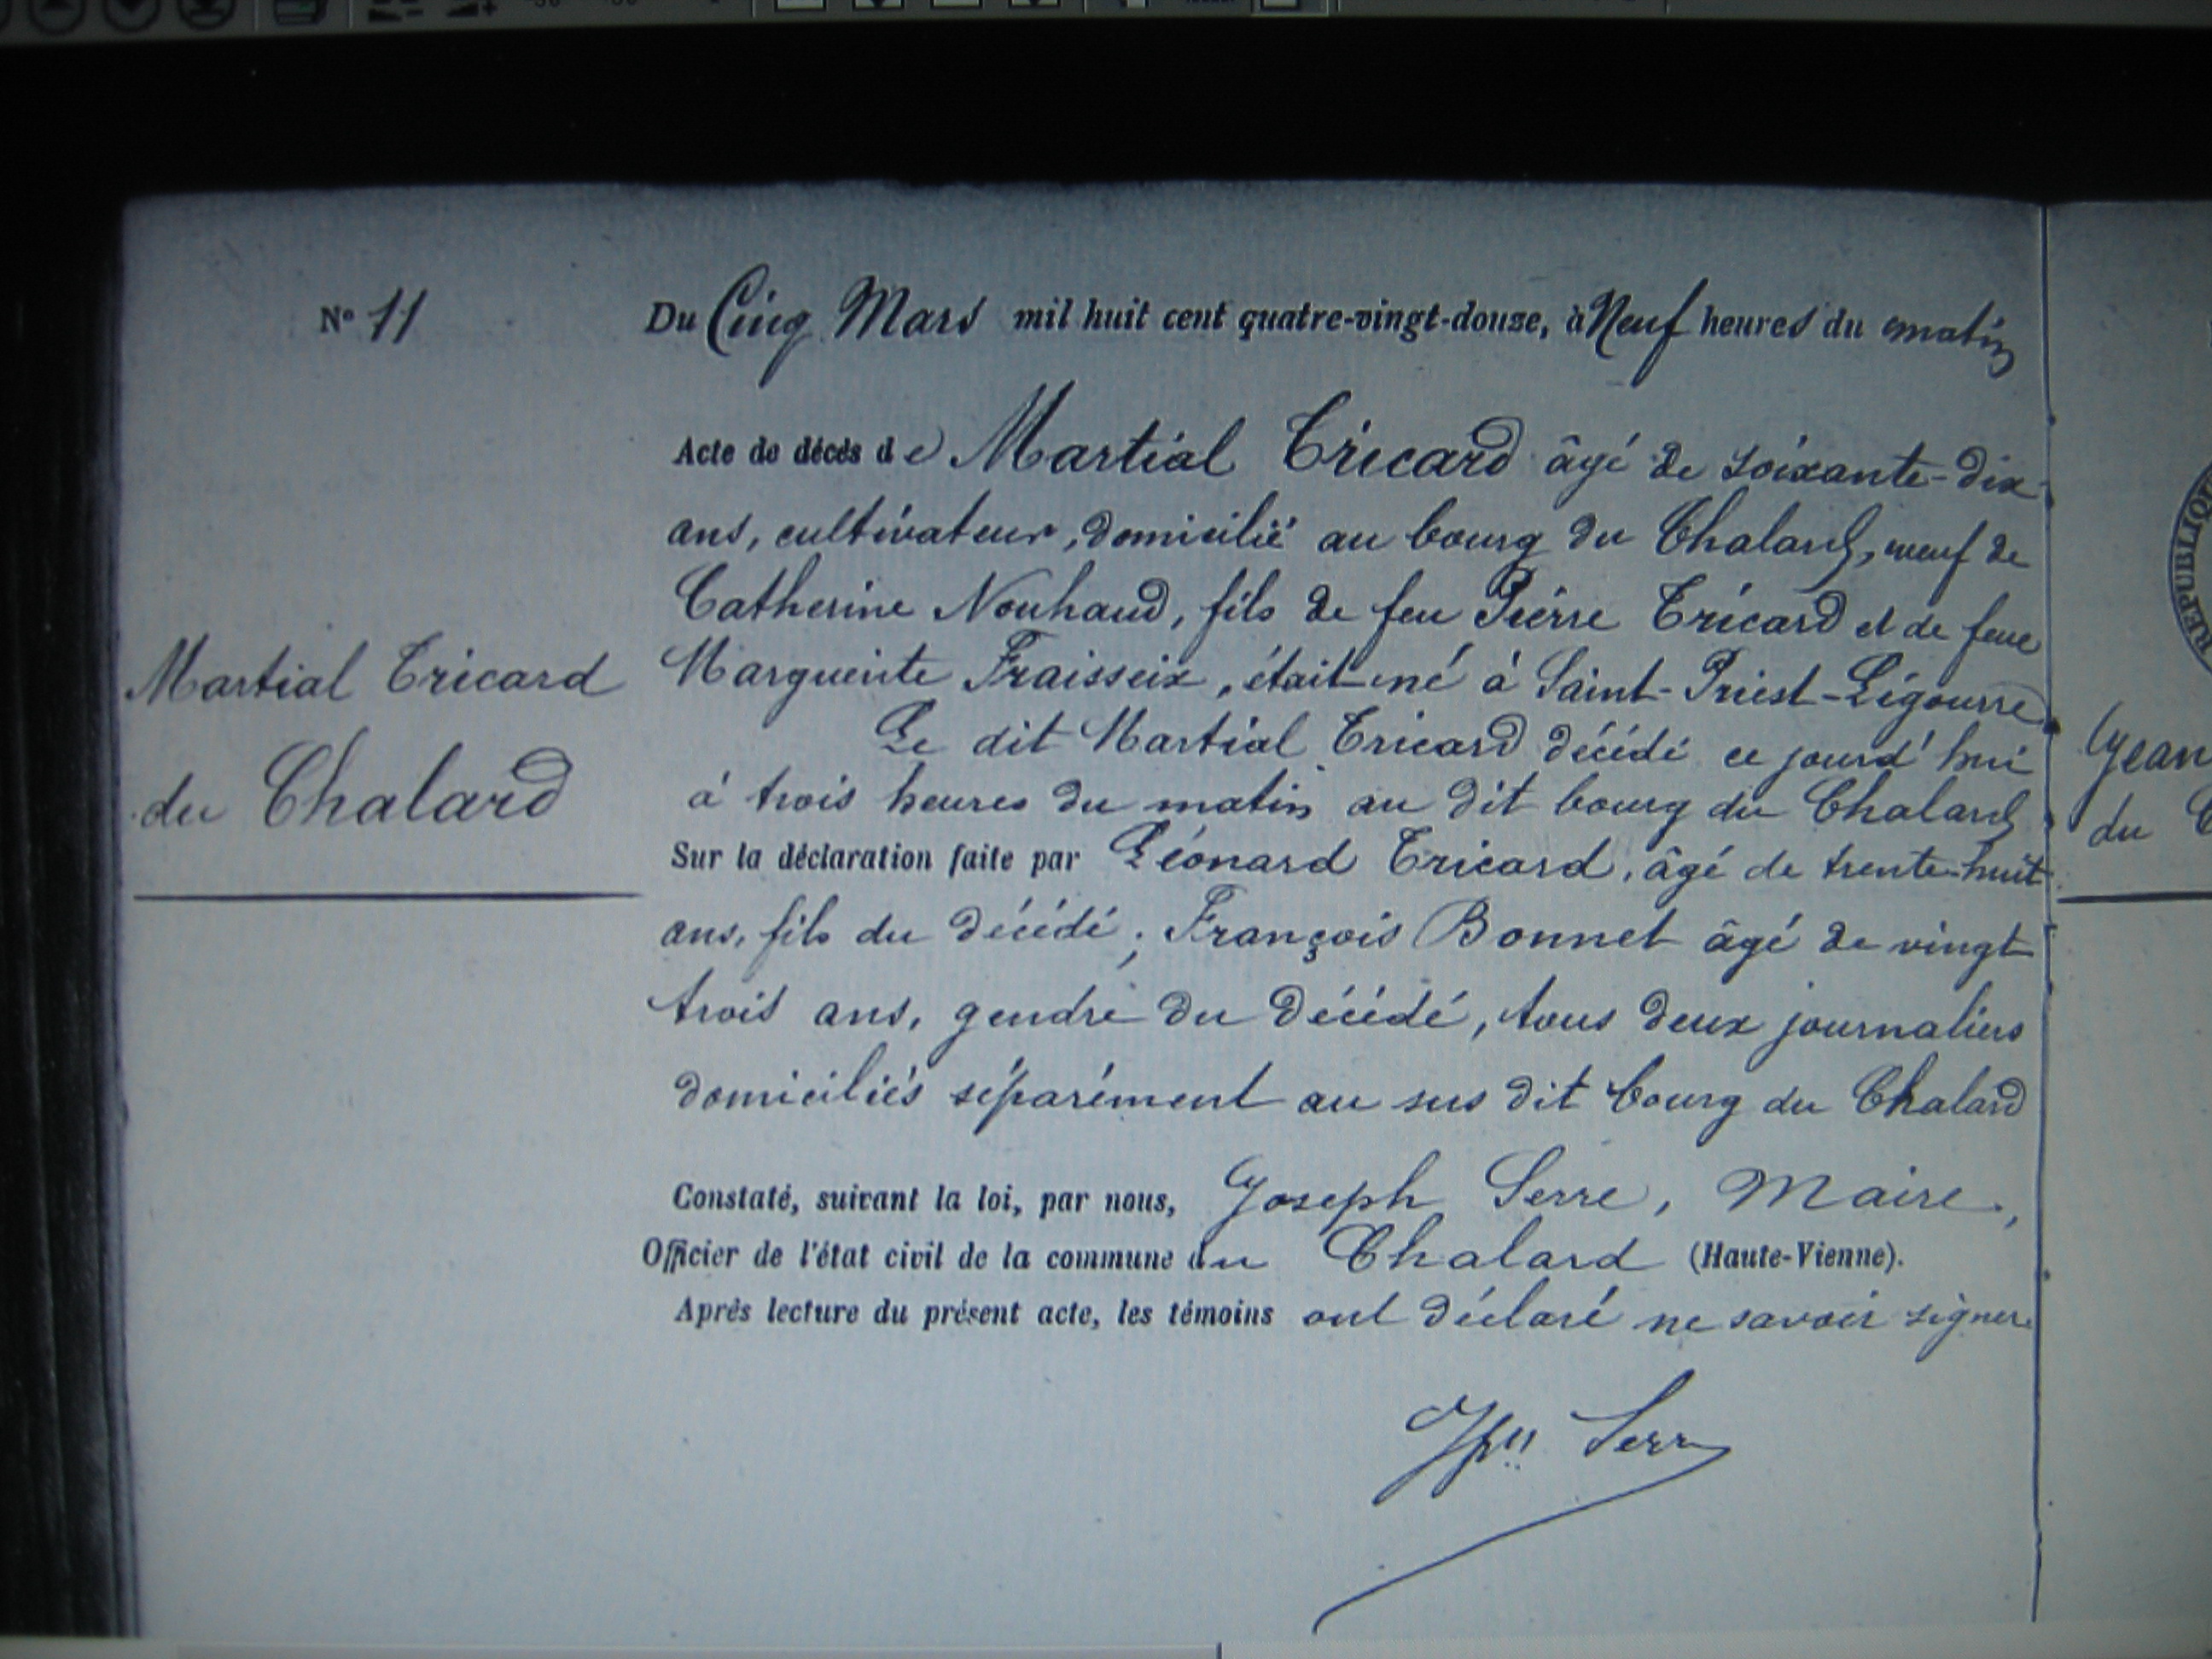 N° 11
Du Cinq Mars mil huit cent quatre-vingt-douze, à Neuf heures du matin
Acte de décès de Martial Tricard âgé de soixante-dix
ans, cultivateur, domicilié au bourg du Chalard, veuf de
Catherine Nouhaud, fils de feu Pierre Tricard et de feue
Marguerite Fraisseix, était né à Saint-Priest-Ligourre.
Le dit Martial Tricard décédé ce jourd'hui
à trois heures du matin au dit bourg du Chalard
Sur la déclaration faite par Léonard Tricard, âgé de trente-huit
ans, fils du décédé; François Bonnet âgé de vingt
trois ans, gendre du décédé, tous deux journaliers
domiciliés séparément au sus dit bourg du Chalard
Constaté, suivant la loi, par nous, Joseph Serre, Maire,
Officier de l'état civil de la commune du Chalard (Haute-Vienne).
Après lecture du présent acte, les témoins ont déclaré ne savoir signer.
Serre
Martial Tricard
du Chalard
Jean
du